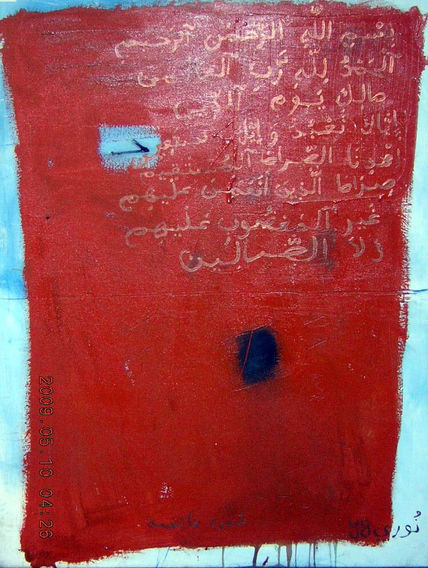 بِسْمِ اللَّهِ الرَّحْمٰنِ الرَّحِيمِ
الْحَمْدُ لِلَّهِ رَبِّ العالمين
مالِكِ يَوْمِ الدين
إِيَّاكَ نَعْبُدُ وَإِيَّاكَ نستعين
اهْدِنَا الصِّرَاطَ المستقيم
صِرَاطَ الَّذِينَ أَنْعَمْتَ عَلَيْهِمْ
غَيْرِ الْمَغْضُوبِ عَلَيْهِمْ
وَلَا الضَّالِّينَ
نُوري 98
2009.05.10 04:26